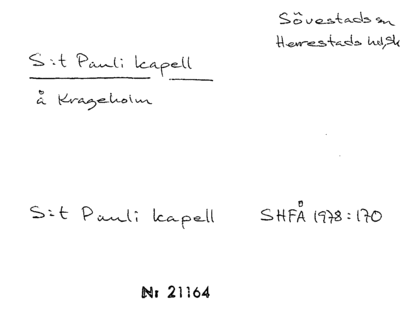 Sövestads sn
Herrestads hd, Sk
S:t Pauli kapell
å Krageholm
S:t Pauli kapell SHFÅ 1978:170
Nr 21164